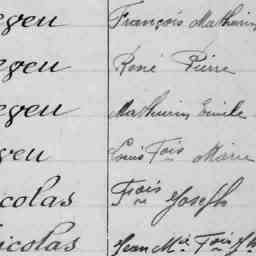 egeu François Mathurin
egeu René Pierre
egeu Mathurin Emile
geu Louis Fois Marie
icolas Fois Joseph
icolas Jean Mie Fois Jh